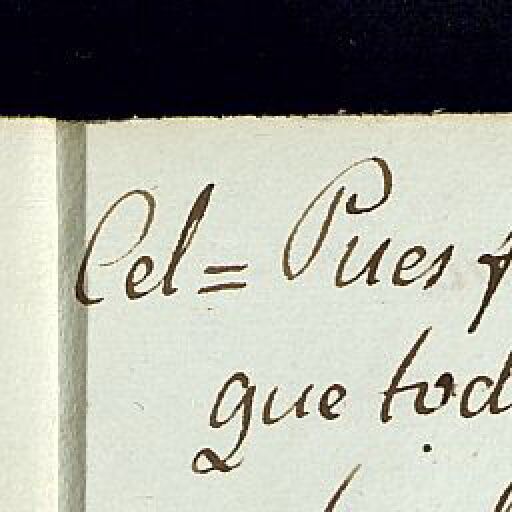 Cel= Pues
que tod